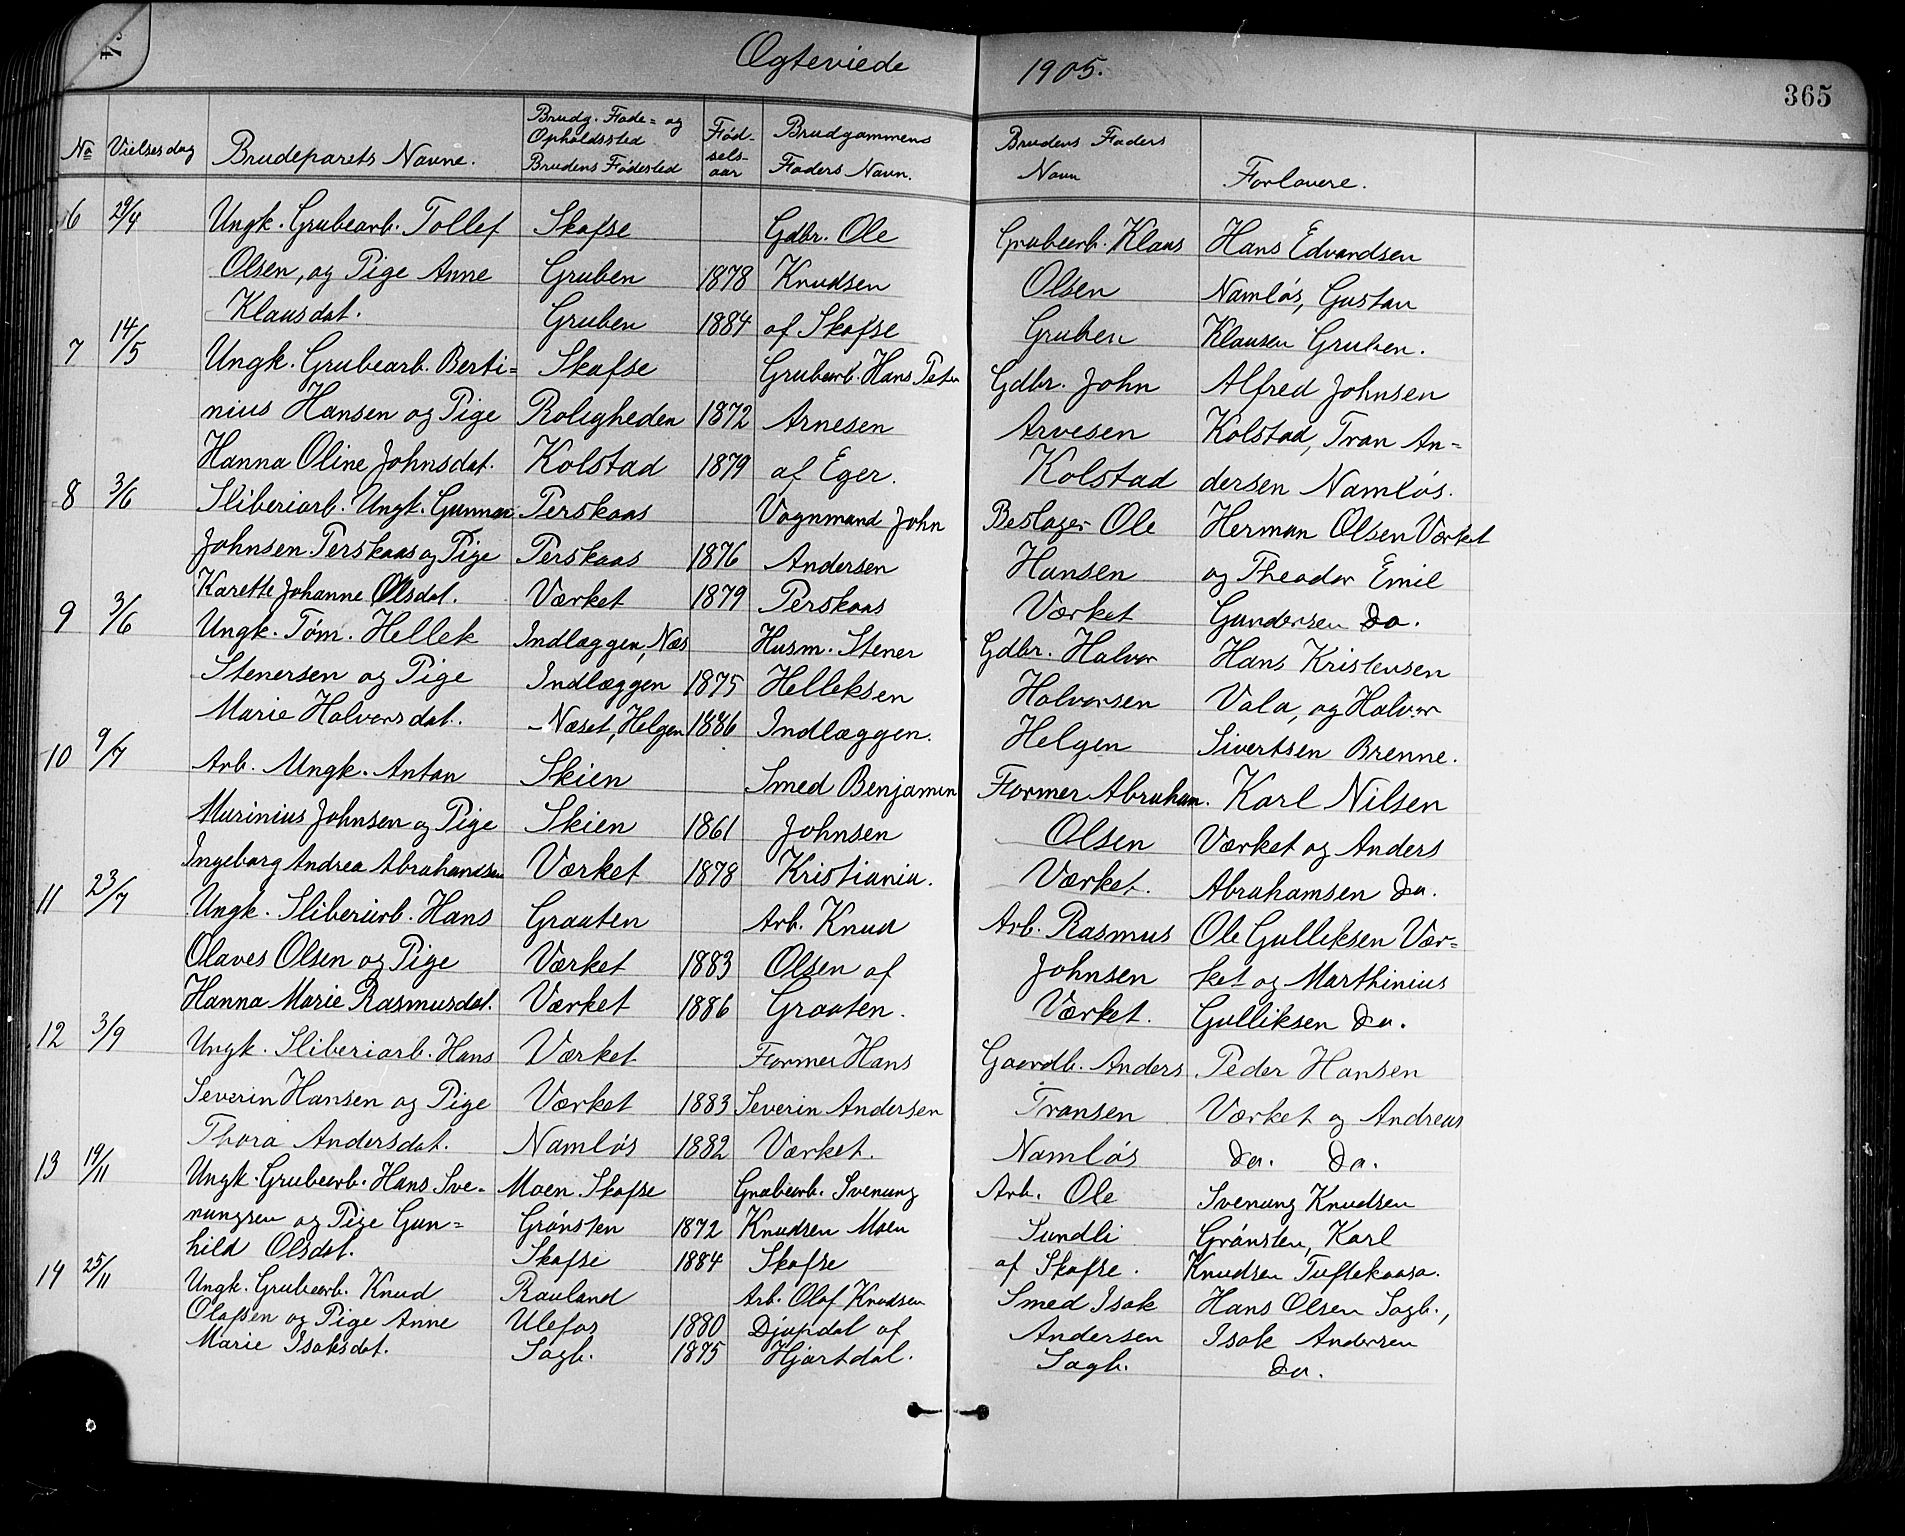 Ægteviede 1905.
365
No Vielsesdag Brudeparets Navne. Brudg. Føde- og Opholdssted Brudens Fødested Fød-sels-aar Brudgommens Faders Navn. Brudens Faders Navn Forlovere.
6 29/4 Ungk. Grubearb. Tollef Skafse Gdbr. Ole Grubearb. Klaus Hans Edvardsen
Olsen, og Pige Anne Gruben 1878 Knudsen Olsen Namløs, Gustav
Klausdat. Gruben 1884 af Skafse Gruben Klausen Gruben.
7 14/5 Ungk. Grubearb. Berti= Skafse Grubearb. Hans Peter Gdbr. John Alfred Johnsen
nius Hansen og Pige Roligheden 1872 Arnesen Arvesen Kolstad, Tran An=
Hanna Oline Johnsdat. Kolstad 1879 af Eger. Kolstad dersen Namløs.
8 3/6 Sliberiarb. Ungk. Gunnar Perskaas Vognmand John Beslager Ole Herman Olsen Værket
Johnsen Perskaas og Pige Perskaas 1876 Andersen Hansen og Theodor Emil
Karette Johanne Olsdat. Værket 1879 Perskaas Værket Gundersen Do.
9 3/6 Ungk. Tøm. Hellek Indlæggen, Næs Husm. Stener Gdbr. Halvor Hans Kristensen
Stenersen og Pige Indlæggen 1875 Helleksen Halvorsen Vala, og Halvor
Marie Halvorsdat. Næset, Helgen 1886 Indlæggen. Helgen Sivertsen Brenne.
10 9/7 Arb. Ungk. Anton Skien Smed Benjamin Former Abraham. Karl Nilsen
Murinius Johnsen og Pige Skien 1861 Johnsen Olsen Værket og Anders
Ingeborg Andrea Abrahamsen Værket 1878 Kristiania. Værket. Abrahamsen Do.
11 23/7 Ungk. Sliberiarb. Hans Graaten Arb. Knud Arb. Rasmus Ole Gulliksen Vær=
Olaves Olsen og Pige Værket 1883 Olsen af Johnsen ket og Marthinius
Hanna Marie Rasmusdat. Værket 1886 Graaten. Værket. Gulliksen Do.
12 3/9 Ungk. Sliberiarb. Hans Værket Former Hans Gaardb. Anders Peder Hansen
Severin Hansen og Pige Værket 1883 Severin Andersen Transen Værket og Andreas
Thora Andersdat. Namløs 1882 Værket. Namløs Do. Do.
13 19/11 Ungk. Grubearb. Hans Sve= Moen Skafse Grubearb. Svenung Arb. Ole Svenung Knudsen
nungsen og Pige Gun= Grønsten 1872 Knudsen Moen Sundli Grønsten, Karl
hild Olsdat. Skafse 1884 Skafse af Skafse. Knudsen Tuftekaasa.
14 25/11 Ungk. Grubearb. Knud Rauland Arb. Olaf Knudsen Smed Isak Hans Olsen Sagb.,
Olafsen og Pige Anne Ulefos 1880 Djupdal af Andersen Isak Andersen
Marie Isaksdat. Sagb. 1875 Hjartdal. Sagb. Do.